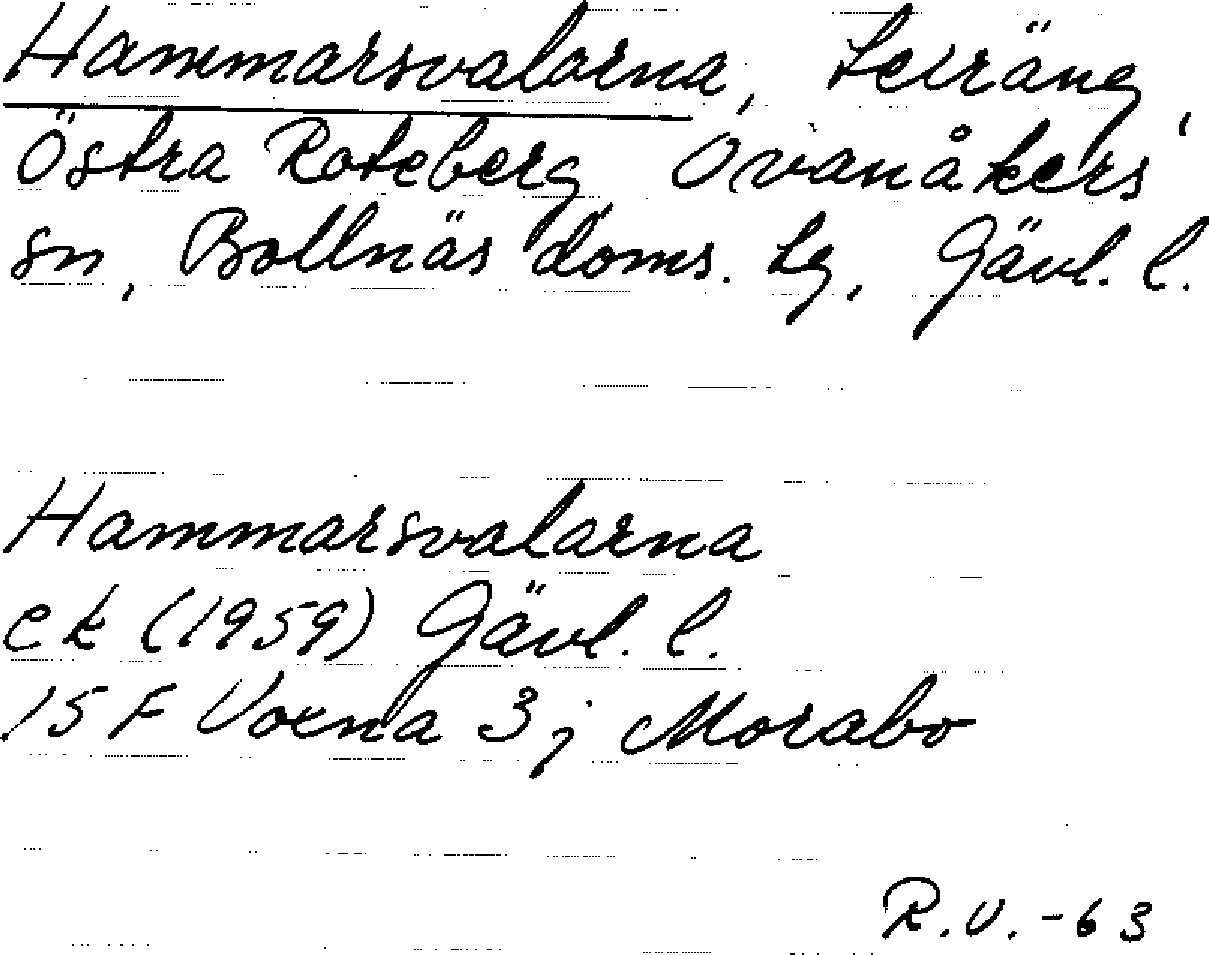 Hammarsvalarna, terräng,
Östra Roteberg, Ovanåkers
sn, Bollnäs doms. tg, Gävl. l.
Hammarsvalarna
ek (1959) Gävl. l.
15 F Voxna 3 j Morabo
R.V. -63